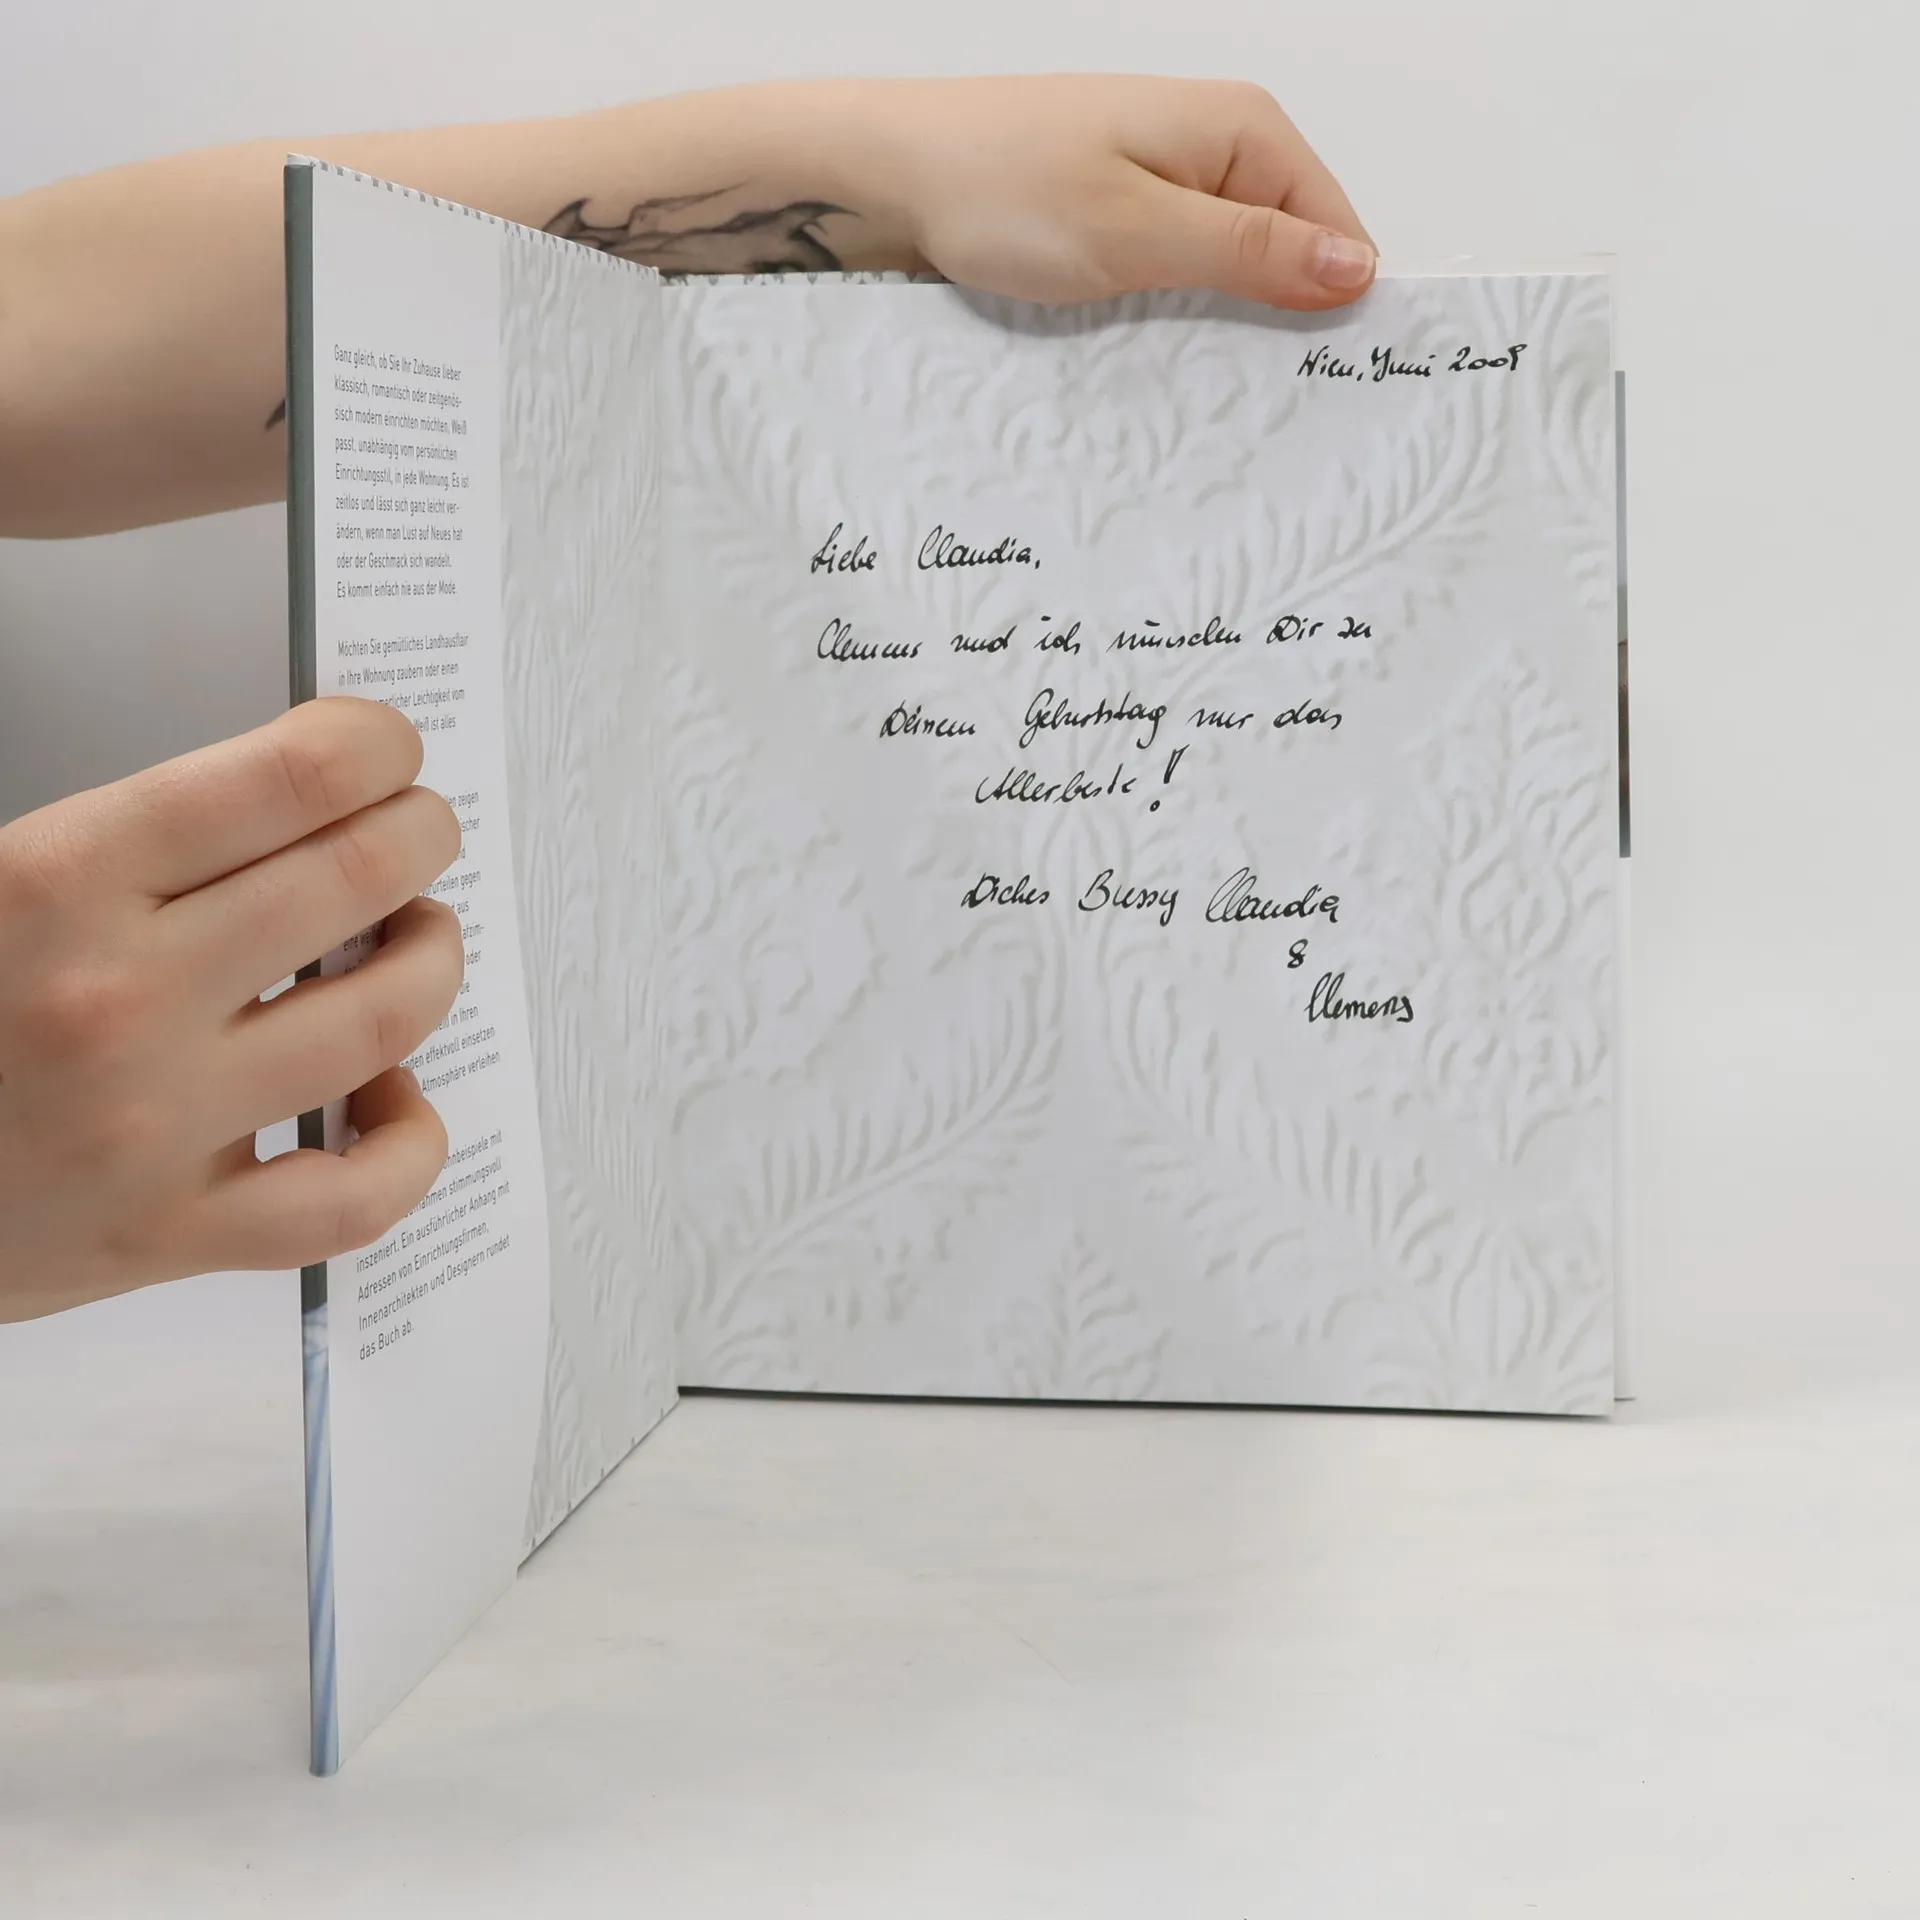 Ganz gleich, ob Sie Ihr Zuhause lieber
klassisch, romantisch oder zeitgenös-
sisch modern einrichten möchten, Weiß
passt, unabhängig vom persönlichen
Einrichtungsstil, in jede Wohnung. Es ist
zeitlos und lässt sich ganz leicht ver-
ändern, wenn man Lust auf Neues hat
oder der Geschmack sich wandelt.
Es kommt einfach nie aus der Mode.
Möchten Sie gemütliches Landhausflair
in Ihre Wohnung zaubern oder einen
Leichtigkeit vom
Weiß ist alles
zeigen
gegen
aus
eine
oder
die
in Ihren
effektvoll einsetzen
Atmosphäre verleihen
mit
stimmungsvoll
inszeniert. Ein ausführlicher Anhang mit
Adressen von Einrichtungsfirmen,
Innenarchitekten und Designern rundet
das Buch ab.
Wien, Juni 2009
Liebe Claudia,
Clemens und ich wünschen Dir zu
Deinem Geburtstag nur das
Allerbeste!
Dickes Bussy Claudia
&
Clemens